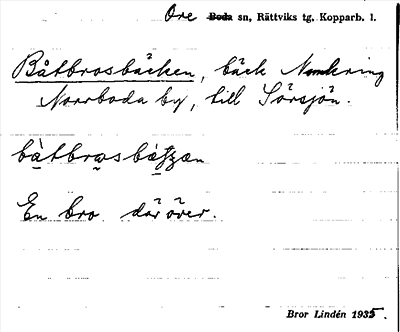 Ore Boda sn, Rättviks tg. Kopparb. l.
Båtbrosbäcken, bäck
Norrboda by, till Sörsjön.
En bro däröver.
Bror Lindén 1935.